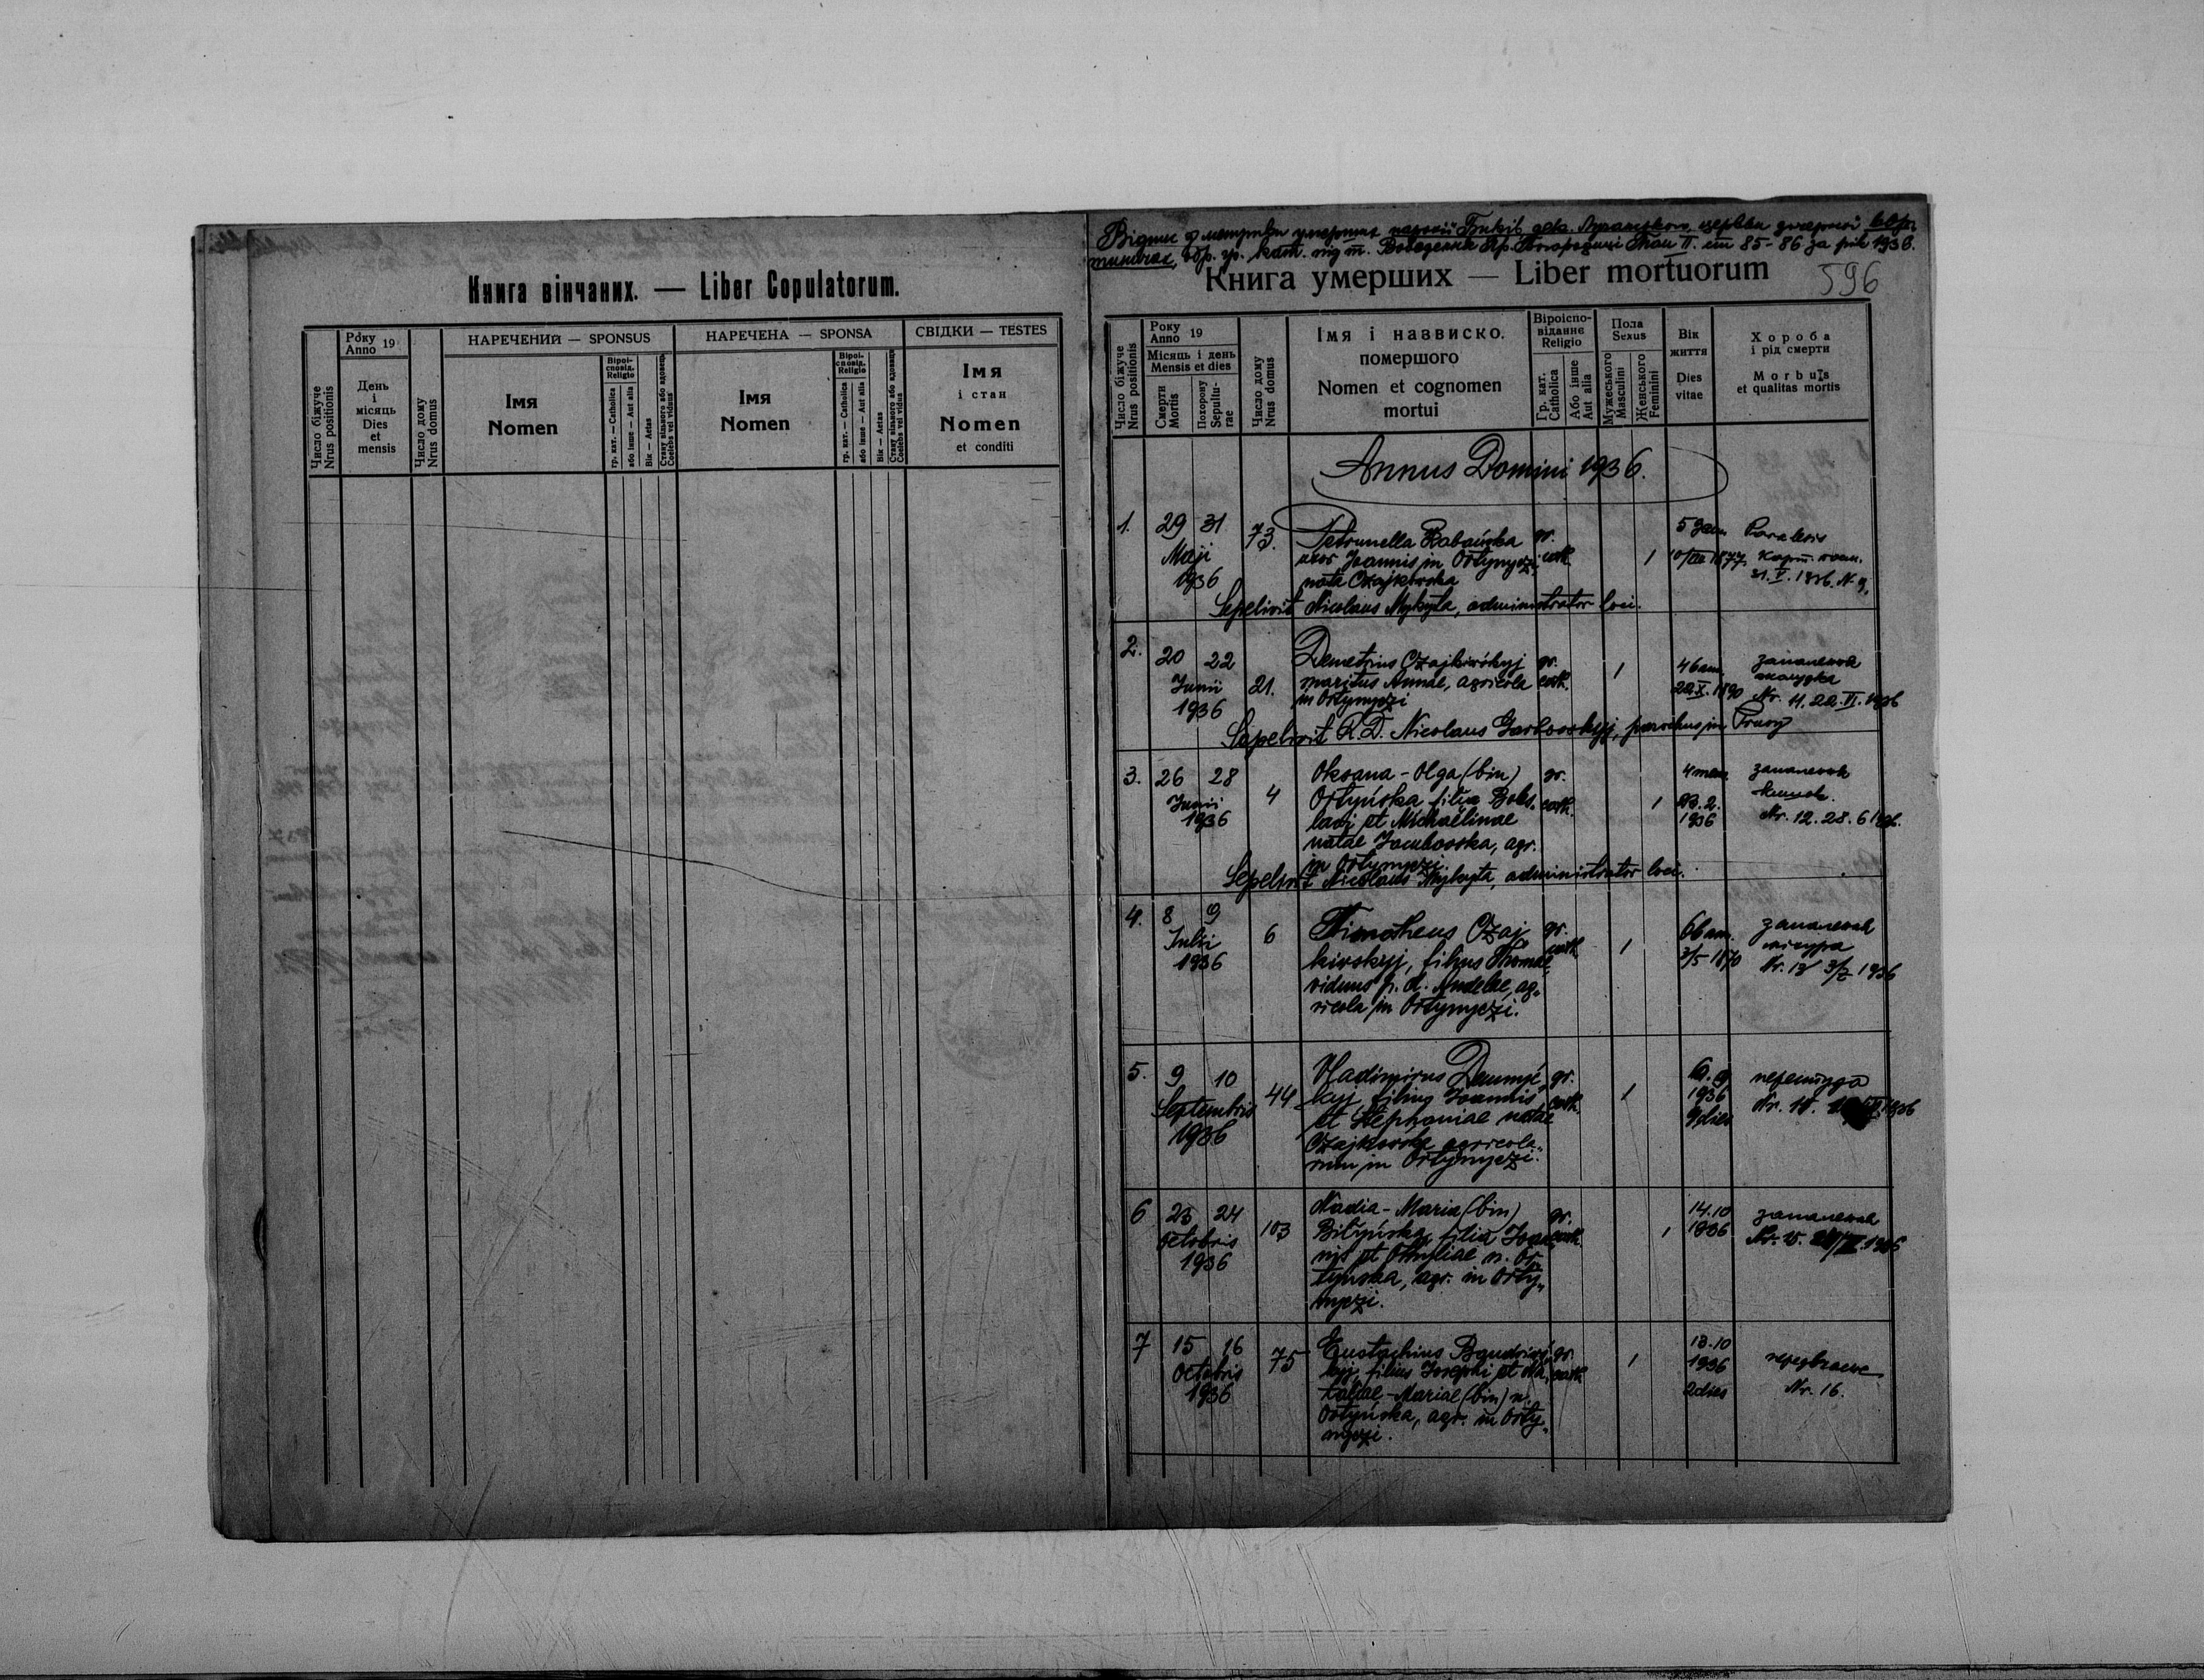 Книга вінчаних. — Liber Copulatorum.
Число біжуче
Nrus positionis
Року
Anno 19
День
і
місяць
Dies
et
mensis
Число дому
Nrus domus
НАРЕЧЕНИЙ — SPONSUS
Імя
Nomen
Віроі-
сповід.
Religio
гр. кат. — Catholica
або інше — Aut alia
Вік — Aetas
Стану вільного або вдовець
Coelebs vel viduus
НАРЕЧЕНА — SPONSA
Імя
Nomen
Віроі-
сповід.
Religio
гр. кат. — Catholica
або інше — Aut alia
Вік — Aetas
Стану вільного або вдовець
Coelebs vel vidua
СВІДКИ — TESTES
Імя
і стан
Nomen
et conditi
Відпис з метрики умерших парохії Биків дек. церкви дочерної
обр. гр. кат. під т. Введення Пр. Богородиці Том II. ст 85-86 за рік 1936.
Книга умерших — Liber mortuorum
596
Число біжуче
Nrus positionis
Року
Anno 19
Місяць і день
Mensis et dies
Смерти
Mortis
Похорону
Sepultu-
rae
Число дому
Nrus domus
Імя і назвиско.
помершого
Nomen et cognomen
mortui
Віроіспо-
віданне
Religio
Гр. кат.
Catholica
Або інше
Aut alia
Пола
Sexus
Мужеського
Masculini
Женського
Feminini
Вік
життя
Dies
vitae
Хороба
і рід смерти
Morbus
et qualitas mortis
Annus Domini 1936.
1. 29 31 73. Petrunella Rabańska gr.
Maji uxor Joannis in Ortynyczi, cath. 1
1936 nata Czajkivska 31. V. 1936. N. 9.
Sepelivit Nicolaus Mykyta, administrator loci.
2. 20 22 Demetrius Czajkivśkyj gr. 1 46 ann. запалення
Junii 21. maritus Annae, agricola cath. 22.X.1890 жолудка
1936 in Ortynyczi Nr. 11. 22. VI. 1936
Sepelivit R.D. Nicolaus parochus in
3. 26 28 4 Oksana - Olga (bin) gr. 4 mens. запалення
Junii Ortyńska filia Boles- cath. 1 23. 2. кишок.
1936 lavi et Michaëlinae 1936 Nr. 12. 28. 6 1936.
natae Jacubovska, agr.
in Ortynyczi.
Sepelivit Nicolaus Mykyta, administrator loci.
4. 8 9 6 Timotheus Czaj gr. 66 ann. запалення
Julii kivskyj, filius Thomae, cath. 1 3/5 1870 міхура
1936 viduus p. d. ag- Nr. 13
ricola in Ortynyczi.
5. 9 10 44 Vladimirus gr. 1 6.9 перестуда
Septembris filius Joannis cath. 1936 Nr. 14.
1936 et Stephaniae natae
Czajkivska agricola-
rum in Ortynyczi.
6 23 24 103 Nadia - Maria (bin) gr. 14.10 запалення
Octobris Bilyńska, filia Joan- cath. 1 1936 Nr. 15.
1936 nis et Othyliae n. Or-
tynska, agr. in Orty-
nyczi.
7 15 16 75 Eustachius gr. 1 13.10
Octobris filius Josephi et Na- cath. 1936 передчасне
1936 taliae-Mariae (bin) n. 2 dies Nr. 16.
Ortyńska, agr. in Orty-
nyczi.